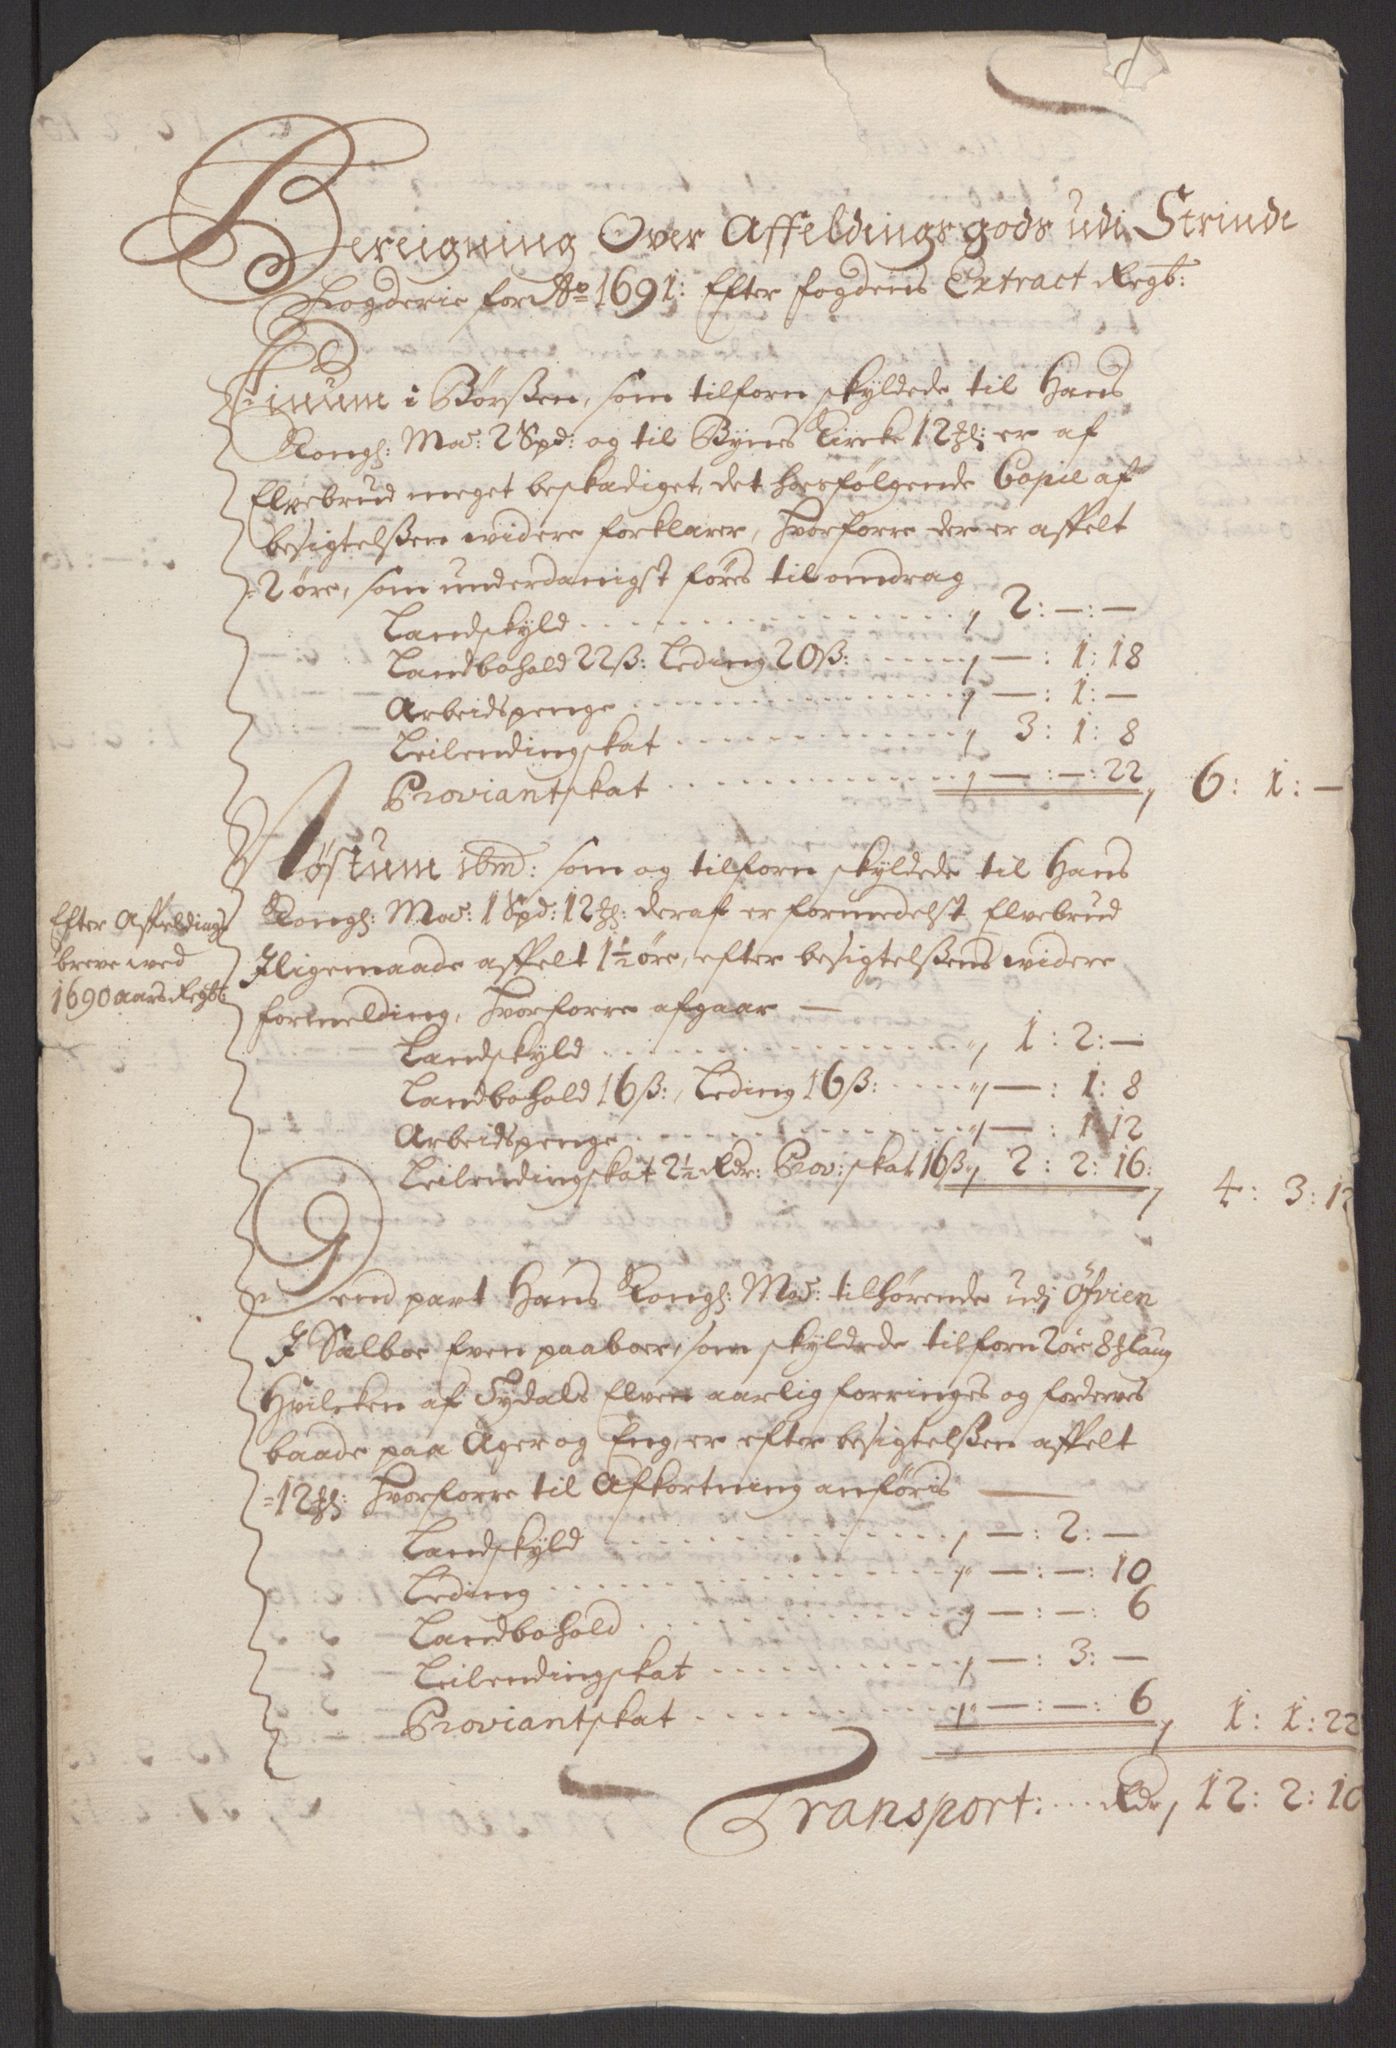 Bereigning Over Affeldings gods udi Strinde
Fogderie for Ao 1691: Efter fogdens Extract Regb:
Einum i Børßen, som tilforn skyldede til Hans
Kongl: Ma: 2 Spd: og til Bynes Kircke 12 ℔: er af
Elvebrud meget beskadiget, det hosfølgende Copie af
besigtelßen widere forklarer, hvorforre der er affelt
2 øre, som underdanigst føres til omdrag
Landskyld . . . . . . . . , 2: — : —
Landbohold 22 ß: Leding 20 ß: . . . . , — : 1: 18
Arbeidspenge . . . . . . . . , — : 1: —
Leilendingskat . . . . . . . . , 3: 1: 8
Proviantskat . . . . . . . . , — : — : 22 , 6: 1: —
ibm: som og tilforn skyldede til Hans
Kongl: Ma: 1 Spd: 12 ℔: deraf er formedelst Elvebrud
Efter Affeldings
breve wed
1690 aars Regb:
J ligemaade affelt 1½ øre, efter besigtelßens widere
formelding, hvorforre afgaar —
Landskyld . . . . . . . . , 1: 2: —
Landbohold 16 ß:, Leding 16 ß: . . . . , — : 1: 8
Arbeidspenge . . . . . . . . , — : 1: 12
Leilendingskat 2½ Rdr: Prov: skat 16 ß , 2: 2: 16: , 4: 3: 12
Dend part Hans Kongl: Ma: tilhørende udj Øfvien
J Sælboe Even paaboer, som skyldede tilforn 2 øre 8 ℔ laug
Hvileken af Tydals Elven aarlig forringes og forderves
baade paa Ager og Eng, er efter besigtelßen affelt
12 ℔: hvorforre til Afkortning anføris —
Landskyld . . . . . . . . , — : 2: —
Leding . . . . . . . . , — : — : 10
Landbohold . . . . . . . . , — : — : 6
Leilendingskat . . . . . . . . , — : 3: —
Proviantskat . . . . . . . . , — : — : 6 , 1: 1: 22
Transport: . . . Rdr , 12: 2: 10